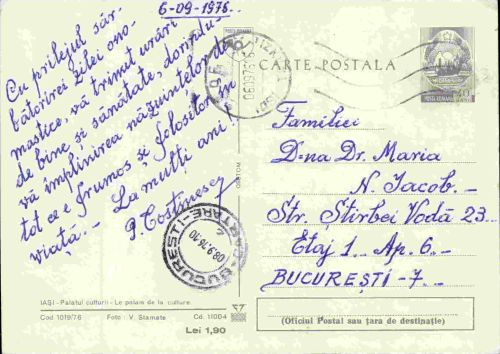 6-09-1976.
Cu prilejul săr-
bătorirei zilei ono-
mastice, vă trimit urări
de bine și sănătate, dorindu-
vă împlinirea năzuințelor în
tot ce e frumos și folositor în
viață. - La mulți ani!
P. Costinescu
CARTE POSTALA
Familiei
D-na Dr. Maria
N. Iacob.-
Str. Știrbei Vodă 23...
Etaj 1.. Ap. 6.-
BUCUREȘTI-7..-
BUCUREȘTI
CARTARE
08.9.76.10
IAȘI - Palatul culturii - Le palais de la culture.
Cod 1019/76 Foto : V. Stamate Cd. 11004
Lei 1,90
(Oficiul Postal sau țara de destinație)